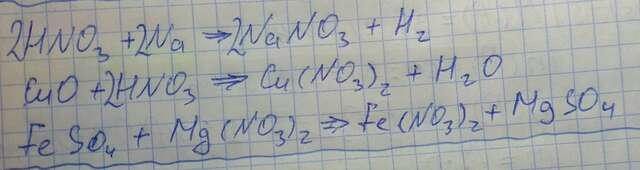 2HNO₃ + 2Na → 2NaNO₃ + H₂
CuO + 2HNO₃ ⇒ Cu(NO₃)₂ + H₂O
FeSO₄ + Mg(NO₃)₂ ⇒ Fe(NO₃)₂ + MgSO₄